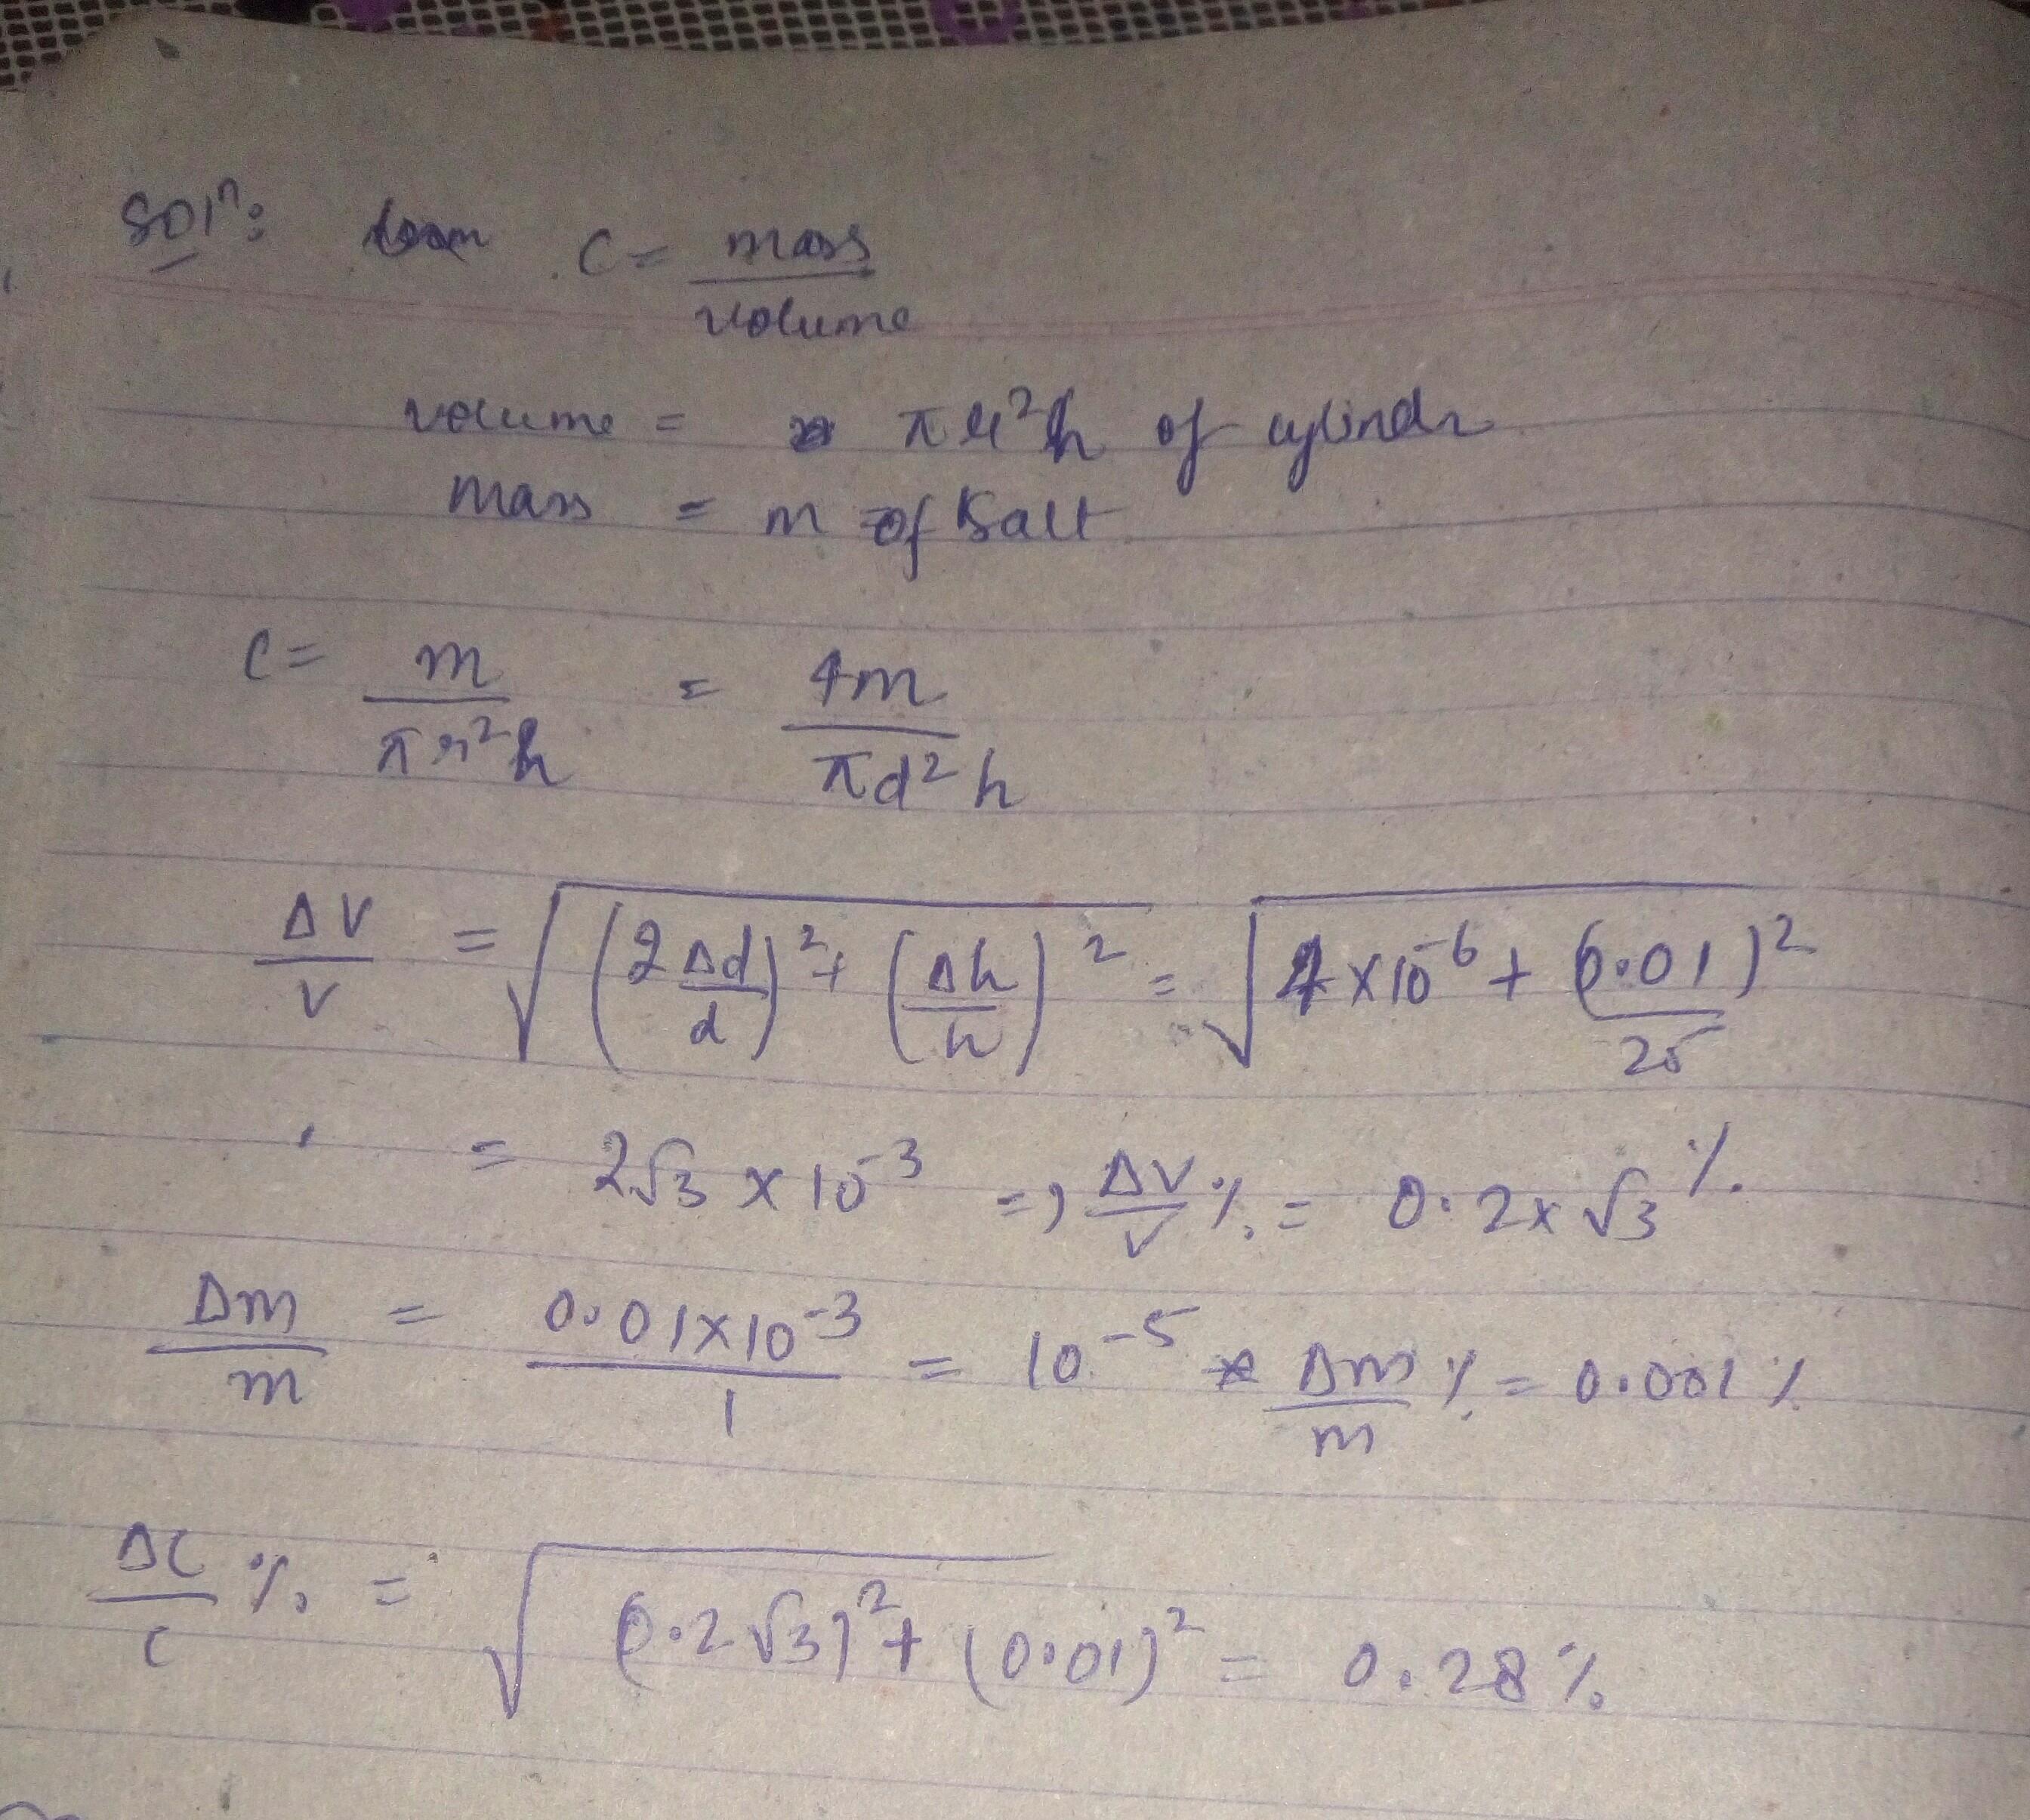 Solⁿ: C = mass / volume
volume = πr²h of cylindr
mass = m of salt
C = m / πr²h = 4m / πd²h
ΔV / V = √((2Δd / d)² + (Δh / h)²) = √(4×10⁻⁶ + (0.01)² / 25)
= 2√3 × 10⁻³ => ΔV / V % = 0.2×√3 %
Δm / m = 0.01×10⁻³ / 1 = 10⁻⁵ Δm / m % = 0.001 %
ΔC / C % = √((0.2√3)² + (0.01)²) = 0.28 %